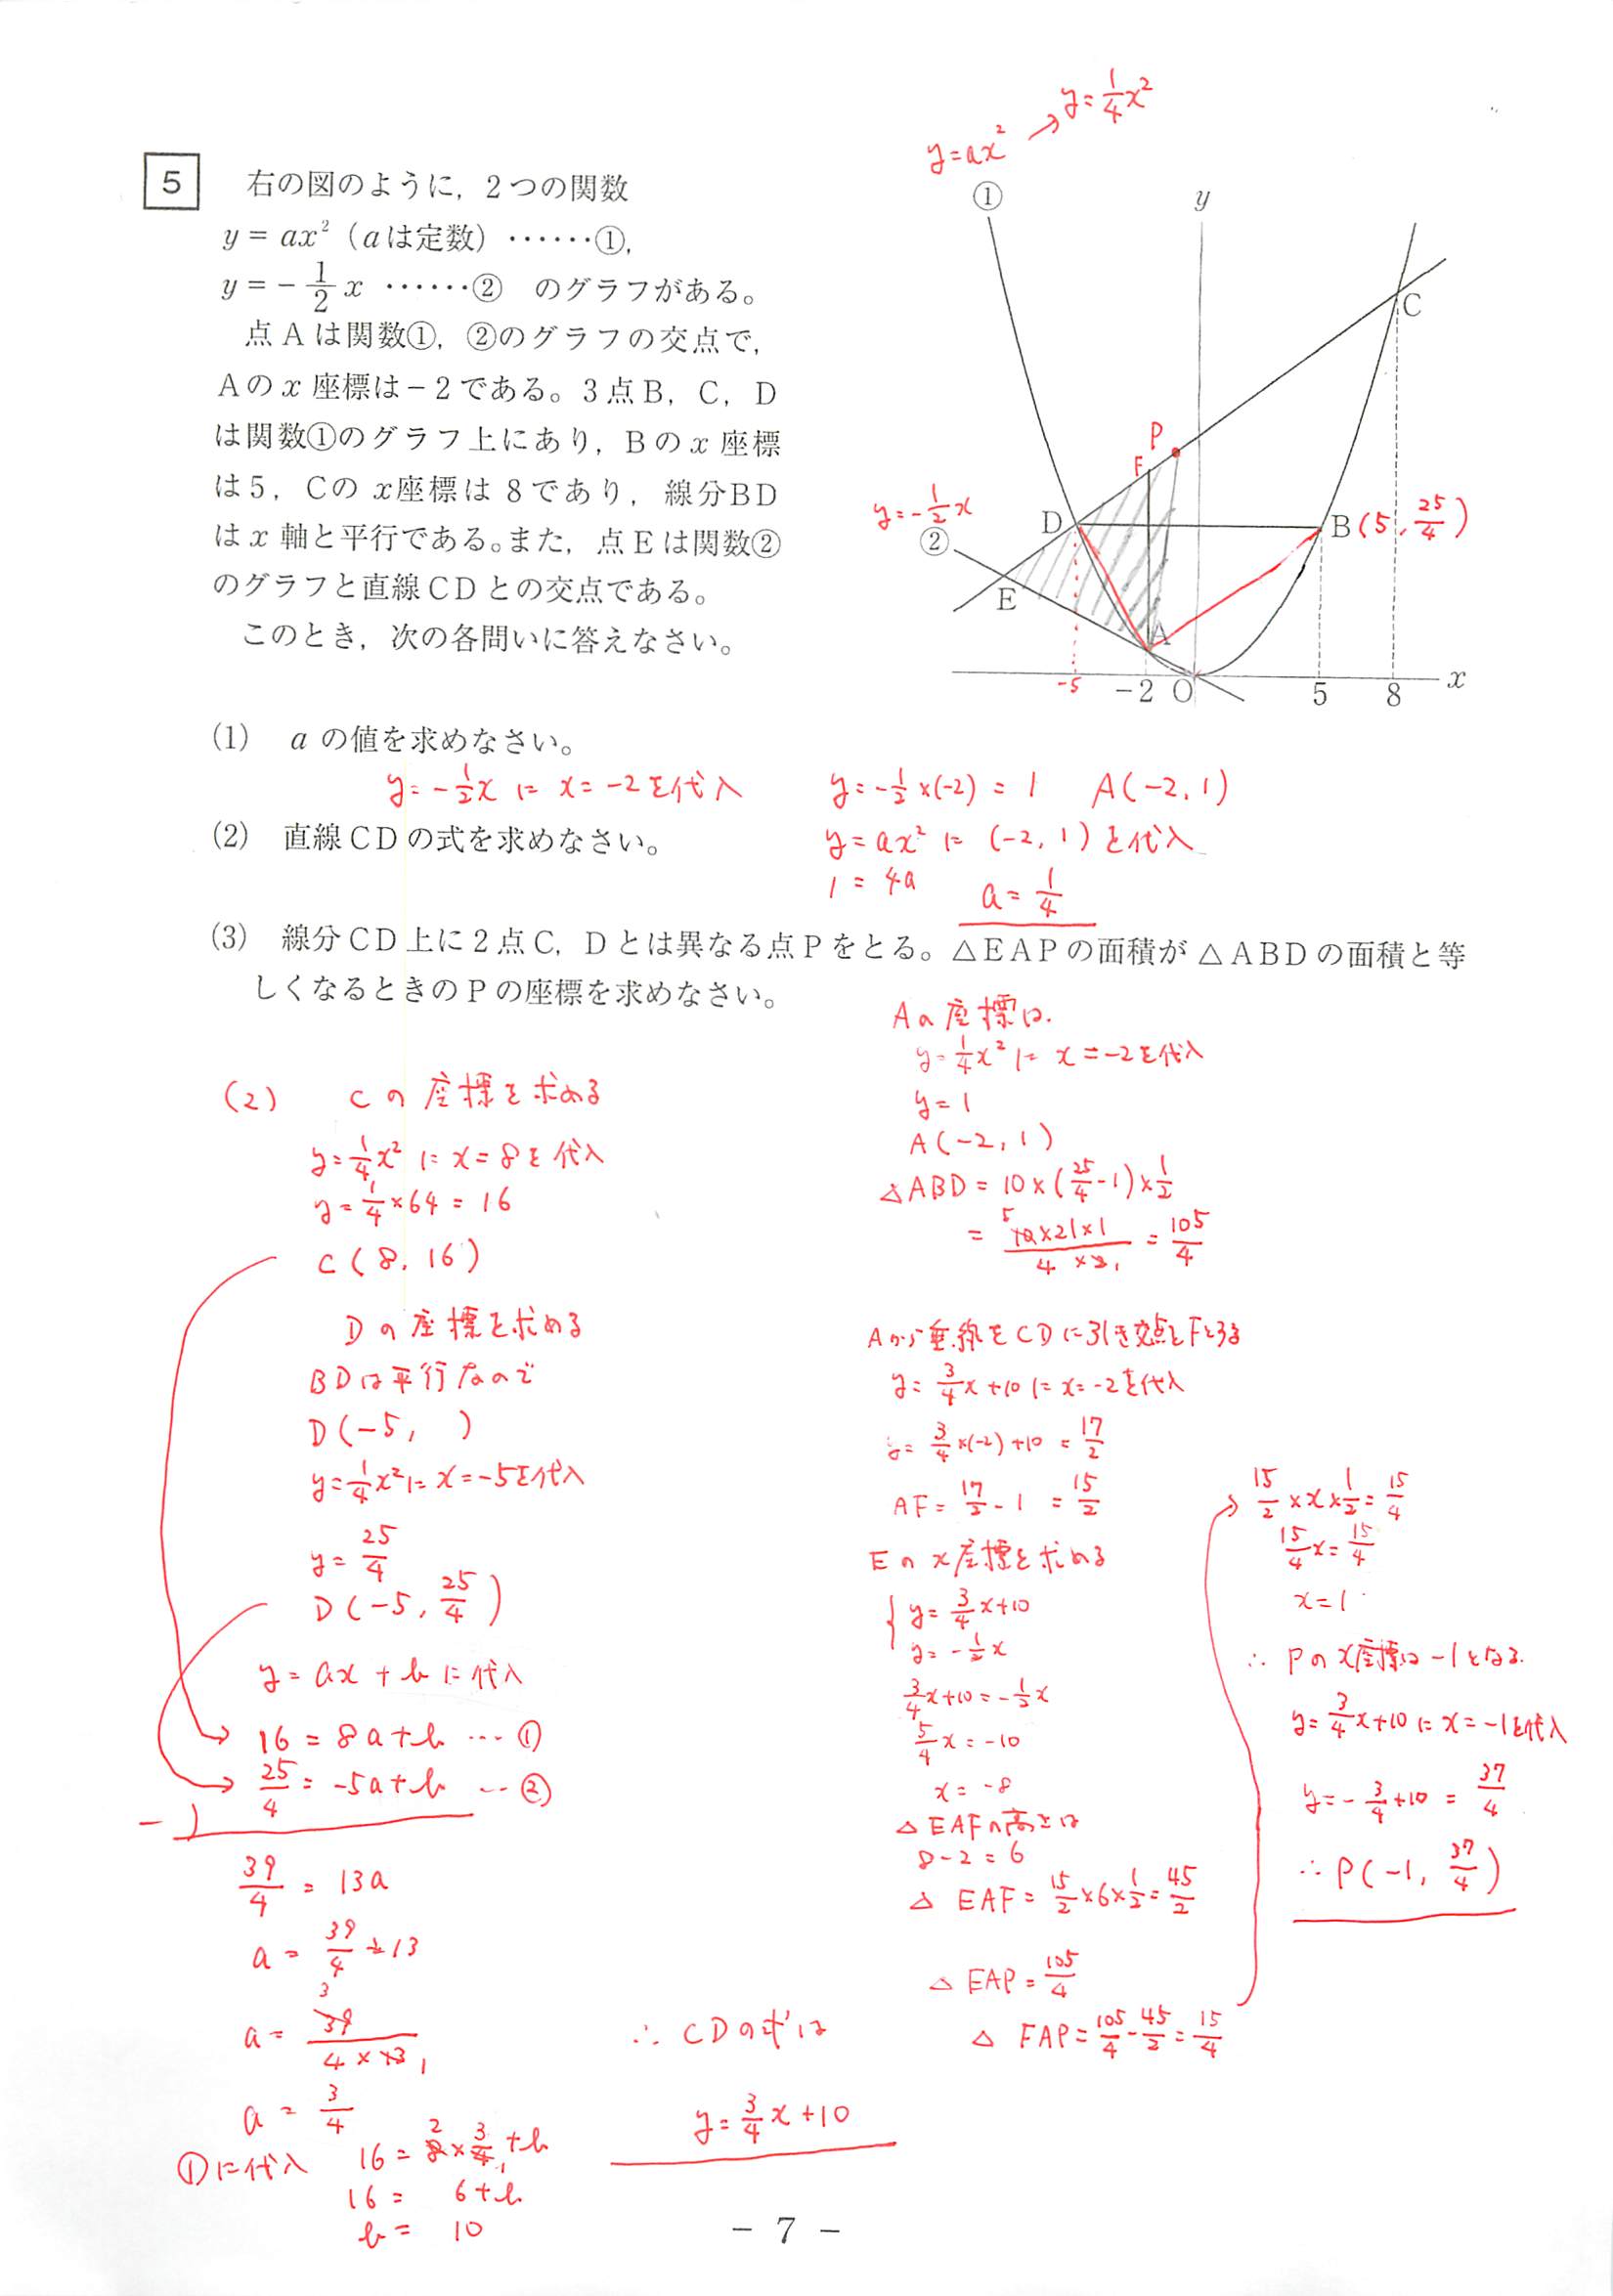 5 右の図のように，2つの関数
y = ax²（aは定数）……①，
y = −1/2 x ……② のグラフがある。
点Aは関数①，②のグラフの交点で，
Aのx座標は−2である。3点B，C，D
は関数①のグラフ上にあり，Bのx座標
は5，Cのx座標は8であり，線分BD
はx軸と平行である。また，点Eは関数②
のグラフと直線CDとの交点である。
このとき，次の各問いに答えなさい。
y=ax² → y=1/4x²
①
y
C
P
F
y=-1/2x
②
D
B(5, 25/4)
E
A
-5
−2
O
5
8
x
(1) aの値を求めなさい。
y=-1/2x に x=-2を代入
y=-1/2×(-2) = 1 A(-2, 1)
(2) 直線CDの式を求めなさい。
y=ax² に (-2, 1) を代入
1 = 4a a=1/4
(3) 線分CD上に2点C，Dとは異なる点Pをとる。△EAPの面積が△ABDの面積と等
しくなるときのPの座標を求めなさい。
(2) Cの座標を求める
y=1/4x² に x=8を代入
y=1/4×64=16
C(8, 16)
Dの座標を求める
BDは平行なので
D(-5, )
y=1/4x²に x=-5を代入
y=25/4
D(-5, 25/4)
y=ax+b に代入
16 = 8a+b … ①
25/4 = -5a+b … ②
−)
39/4 = 13a
a = 39/4 ÷13
a = 39/4×13 3 1
a = 3/4
①に代入 16=8×3/4+b 2 1
16= 6+b
b= 10
∴ CDの式は
y=3/4x+10
Aの座標は.
y=1/4x² に x=-2を代入
y=1
A(-2, 1)
△ABD=10×(25/4-1)×1/2
= 10×21×1/4×2 5 1 = 105/4
Aから垂線をCDに引き交点をFとする
y=3/4x+10に x=-2を代入
y=3/4×(-2)+10=17/2
AF=17/2-1 =15/2
Eのx座標を求める
{ y=3/4x+10
y=-1/2x
3/4x+10=-1/2x
5/4x=-10
x=-8
△EAFの高さは
8-2=6
△EAF=15/2×6×1/2=45/2
△EAP=105/4
△FAP=105/4-45/2=15/4
15/2×x×1/2=15/4
15/4x=15/4
x=1
∴ Pのx座標は-1となる.
y=3/4x+10に x=-1を代入
y=-3/4+10=37/4
∴ P(-1, 37/4)
− 7 −